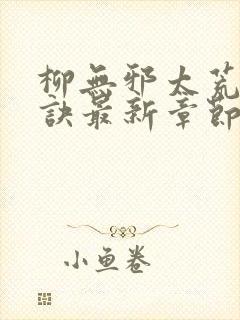 柳無邪太荒
訣最新章節
小魚卷